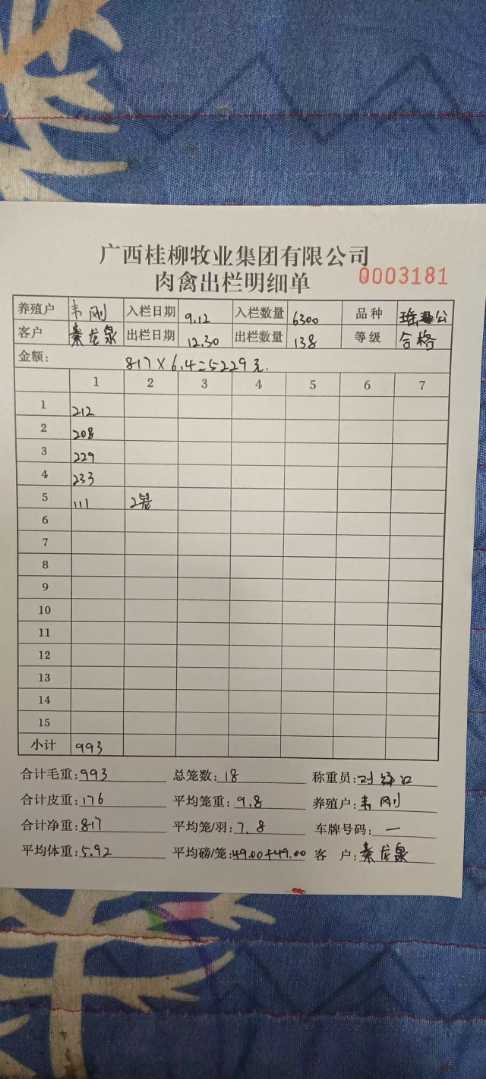 广西桂柳牧业集团有限公司
肉禽出栏明细单 0003181
养殖户 韦刚 入栏日期 9.12 入栏数量 6300 品种 公
客户 秦龙泉 出栏日期 12.30 出栏数量 138 等级 合格
金额: 817×6.4=5229元.
1 2 3 4 5 6 7
1 212
2 208
3 229
4 233
5 111 2笼
6
7
8
9
10
11
12
13
14
15
小计 993
合计毛重:993 总笼数:18 称重员:
合计皮重:176 平均笼重:9.8 养殖户:韦刚
合计净重:817 平均笼/羽:7.8 车牌号码:一
平均体重:5.92 平均磅/笼:49.00+49.00 客户:秦龙泉